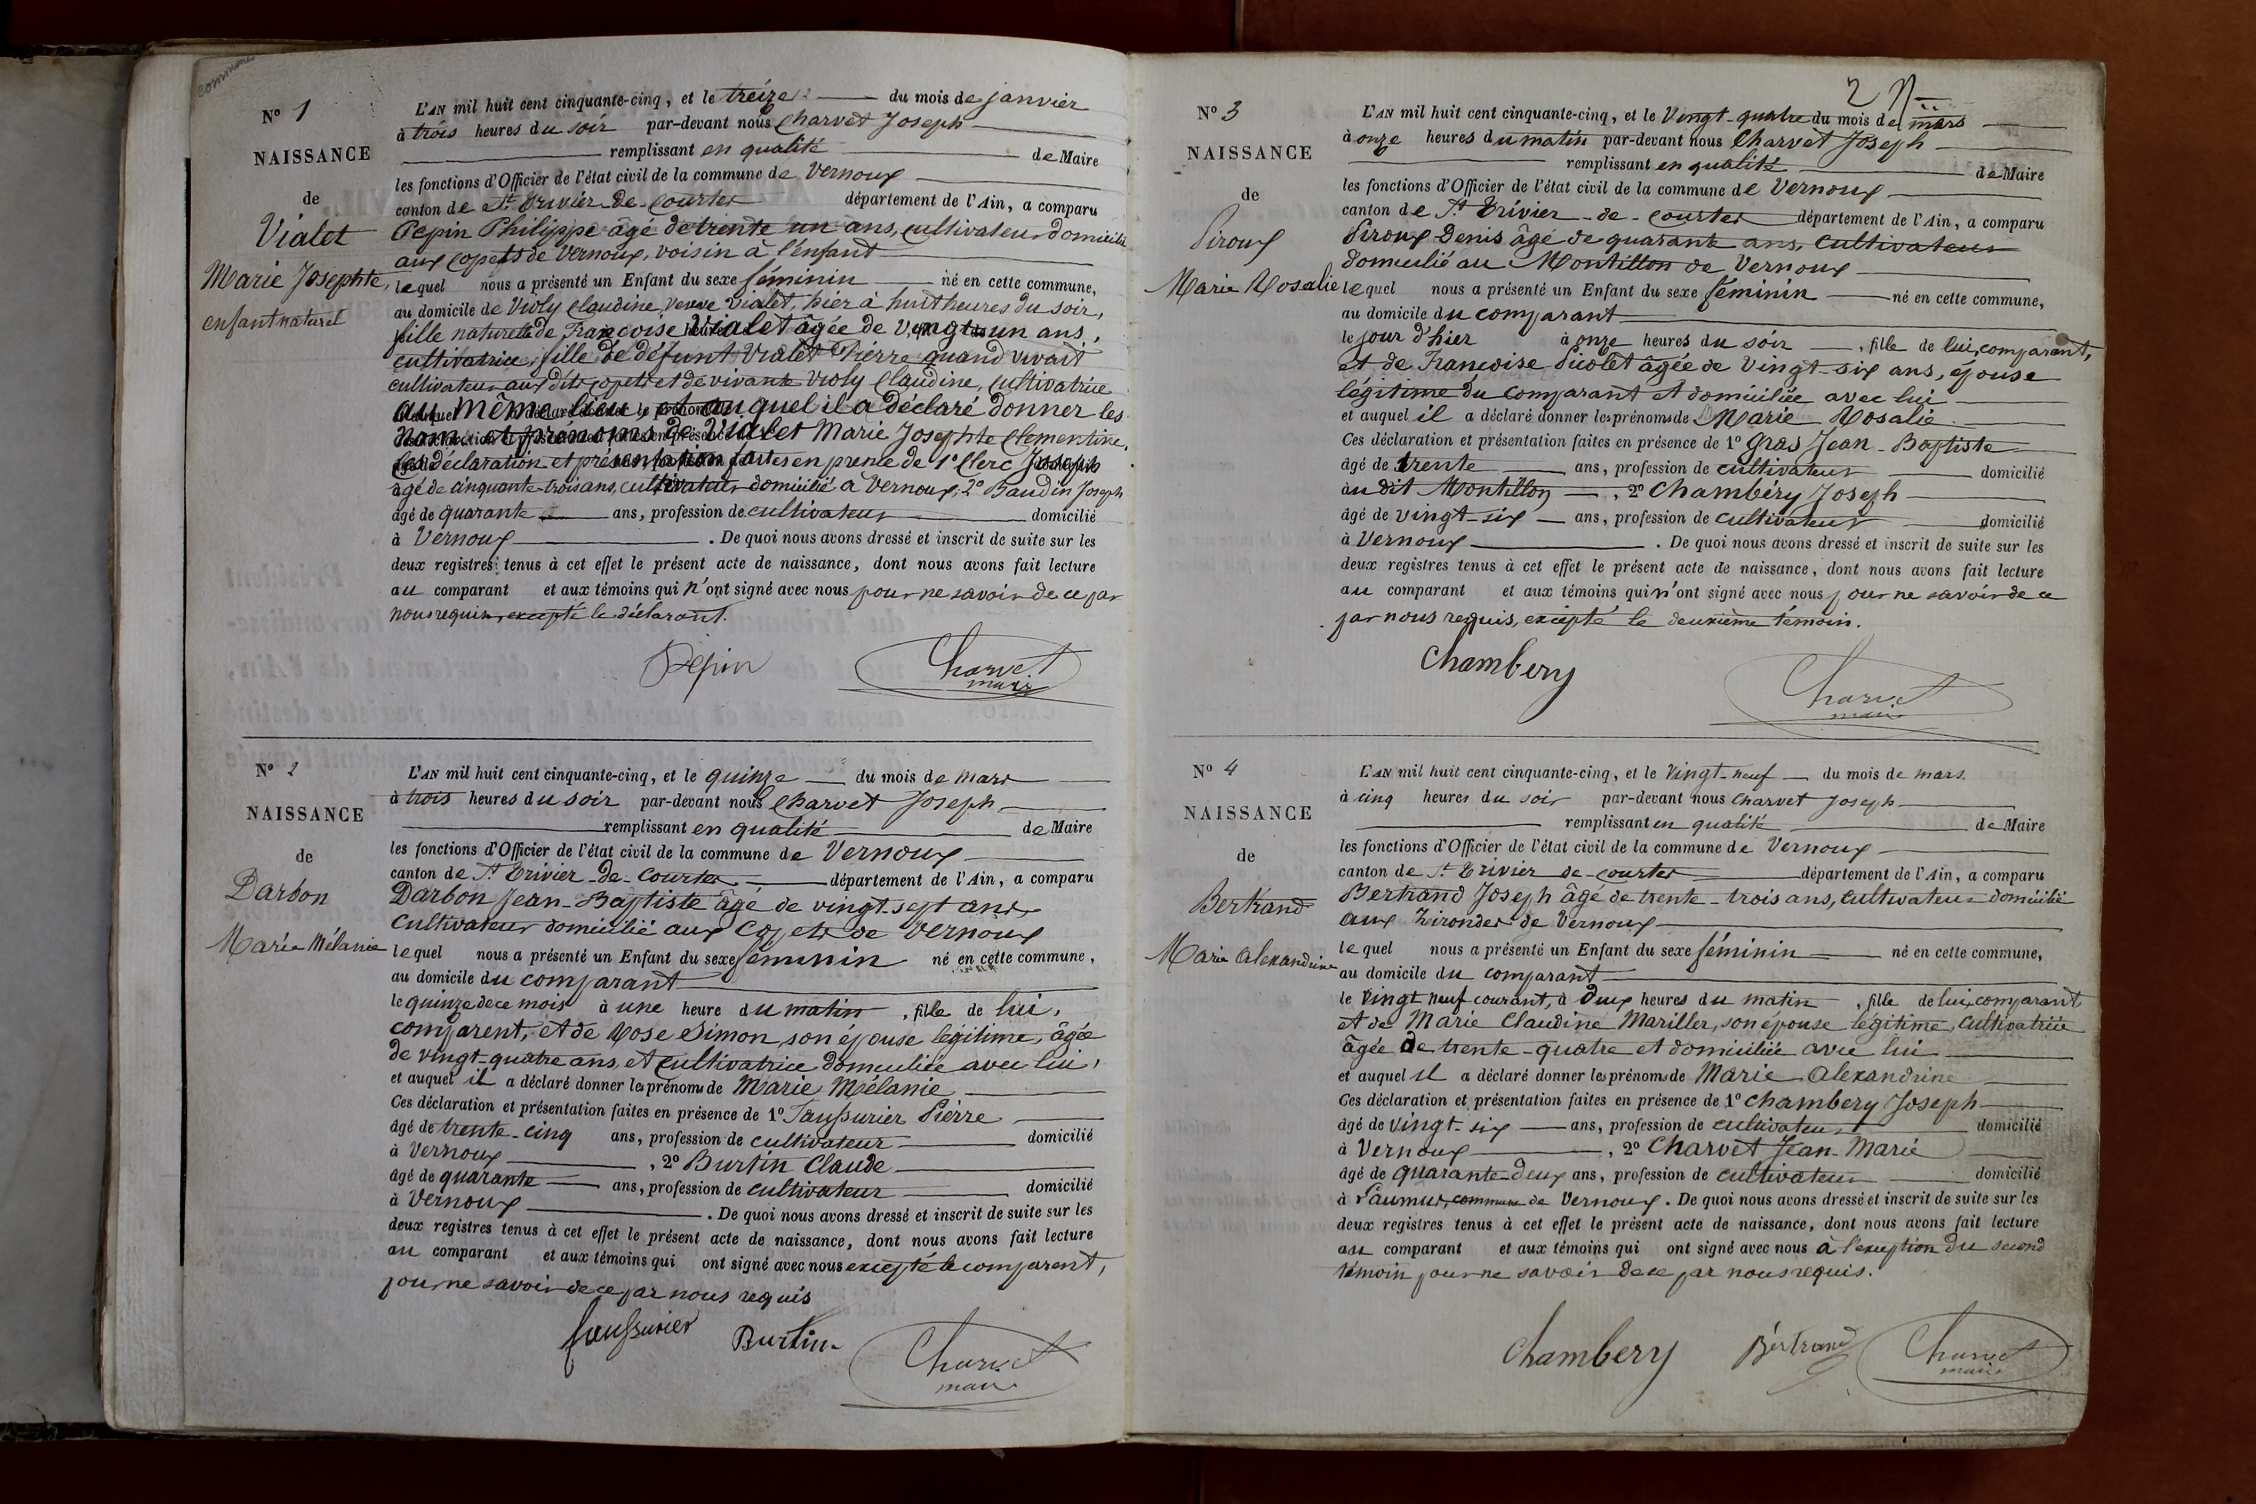 commune
N° 1
NAISSANCE
de
Vialet
Marie Josephte,
enfant naturel
L'AN mil huit cent cinquante-cinq, et le treize du mois de janvier
à trois heures du soir par-devant nous Charvet Joseph
remplissant en qualité de Maire
les fonctions d'Officier de l'état civil de la commune de Vernoux
canton de St Trivier-de-Courtes département de l'Ain, a comparu
Pepin Philippe âgé de trente un ans, cultivateur domicilié
aux Copets de Vernoux, voisin à l'enfant
lequel nous a présenté un Enfant du sexe féminin né en cette commune,
au domicile de Violy Claudine, veuve Vialet, hier à huit heures du soir,
fille naturelle de Françoise Vialet âgée de vingt un ans,
cultivatrice, fille de défunt Vialet Pierre quand vivait
cultivateur aux dits copets et de vivante Violy Claudine, cultivatrice
au même lieu, et auquel il a déclaré donner les
nom et prénoms de Vialet Marie Josephte Clementine,
Ces déclaration et présentation faites en presence de 1° Clerc Joseph
âgé de cinquante-trois ans, cultivateur domicilié à Vernoux, 2° Baudin Joseph
âgé de quarante ans, profession de cultivateur domicilié
à Vernoux . De quoi nous avons dressé et inscrit de suite sur les
deux registres tenus à cet effet le présent acte de naissance, dont nous avons fait lecture
au comparant et aux témoins qui n'ont signé avec nous pour ne savoir de ce par
nous requis, excepté le déclarant.
Pepin Charvet
maire
N° 2
NAISSANCE
de
Darbon
Marie Mélanie
L'AN mil huit cent cinquante-cinq, et le quinze du mois de mars
à trois heures du soir par-devant nous Charvet Joseph
remplissant en qualité de Maire
les fonctions d'Officier de l'état civil de la commune de Vernoux
canton de St Trivier-de-Courtes département de l'Ain, a comparu
Darbon Jean-Baptiste âgé de vingt-sept ans
cultivateur domicilié aux Copets de Vernoux
lequel nous a présenté un Enfant du sexe féminin né en cette commune,
au domicile du comparant
le quinze de ce mois à une heure du matin, fille de lui,
comparent, et de Rose Simon, son épouse légitime, âgée
de vingt-quatre ans, et cultivatrice domiciliée avec lui,
et auquel il a déclaré donner les prénoms de Marie Mélanie
Ces déclaration et présentation faites en présence de 1° Faussurier Pierre
âgé de trente-cinq ans, profession de cultivateur domicilié
à Vernoux, 2° Burtin Claude
âgé de quarante ans, profession de cultivateur domicilié
à Vernoux . De quoi nous avons dressé et inscrit de suite sur les
deux registres tenus à cet effet le présent acte de naissance, dont nous avons fait lecture
au comparant et aux témoins qui ont signé avec nous excepté le comparent,
pour ne savoir de ce par nous requis
faussurier Burtin Charvet
maire
2
N° 3
NAISSANCE
de
Piroux
Marie Rosalie
L'AN mil huit cent cinquante-cinq, et le vingt-quatre du mois de mars
à onze heures du matin par-devant nous Charvet Joseph
remplissant en qualité de Maire
les fonctions d'Officier de l'état civil de la commune de Vernoux
canton de St Trivier-de-Courtes département de l'Ain, a comparu
Piroux Denis âgé de quarante ans, cultivateur
domicilié au Montillon de Vernoux
lequel nous a présenté un Enfant du sexe féminin né en cette commune,
au domicile du comparant
le jour d'hier à onze heures du soir, fille de lui, comparant,
et de Françoise Picolet âgée de vingt-six ans, epouse
légitime du comparant et domiciliée avec lui
et auquel il a déclaré donner les prénoms de Marie Rosalie
Ces déclaration et présentation faites en présence de 1° Gras Jean-Baptiste
âgé de trente ans, profession de cultivateur domicilié
au dit Montillon, 2° Chambéry Joseph
âgé de vingt-six ans, profession de cultivateur domicilié
à Vernoux . De quoi nous avons dressé et inscrit de suite sur les
deux registres tenus à cet effet le présent acte de naissance, dont nous avons fait lecture
au comparant et aux témoins qui n'ont signé avec nous pour ne savoir de ce
par nous requis, excepté le deuxième témoin.
Chambery Charvet
maire
N° 4
NAISSANCE
de
Bertrand
Marie Alexandrine
L'AN mil huit cent cinquante-cinq, et le vingt-neuf du mois de mars.
à cinq heures du soir par-devant nous Charvet Joseph
remplissant en qualité de Maire
les fonctions d'Officier de l'état civil de la commune de Vernoux
canton de St Trivier de-courtes département de l'Ain, a comparu
Bertrand Joseph âgé de trente-trois ans, cultivateur domicilié
aux de Vernoux
lequel nous a présenté un Enfant du sexe féminin né en cette commune,
au domicile du comparant
le vingt neuf courant, à deux heures du matin, fille de lui, comparant
et de Marie Claudine Mariller, son épouse légitime, cultivatrice
âgée de trente-quatre et domiciliée avec lui
et auquel il a déclaré donner les prénoms de Marie Alexandrine
Ces déclaration et présentation faites en présence de 1° Chambery Joseph
âgé de vingt-six ans, profession de cultivateur domicilié
à Vernoux, 2° Charvet Jean-Marie
âgé de quarante-deux ans, profession de cultivateur domicilié
à Saumur, commune de Vernoux. De quoi nous avons dressé et inscrit de suite sur les
deux registres tenus à cet effet le présent acte de naissance, dont nous avons fait lecture
au comparant et aux témoins qui ont signé avec nous à l'exception du second
témoin pour ne savoir de ce par nous requis.
Chambery Bertrand Charvet
maire